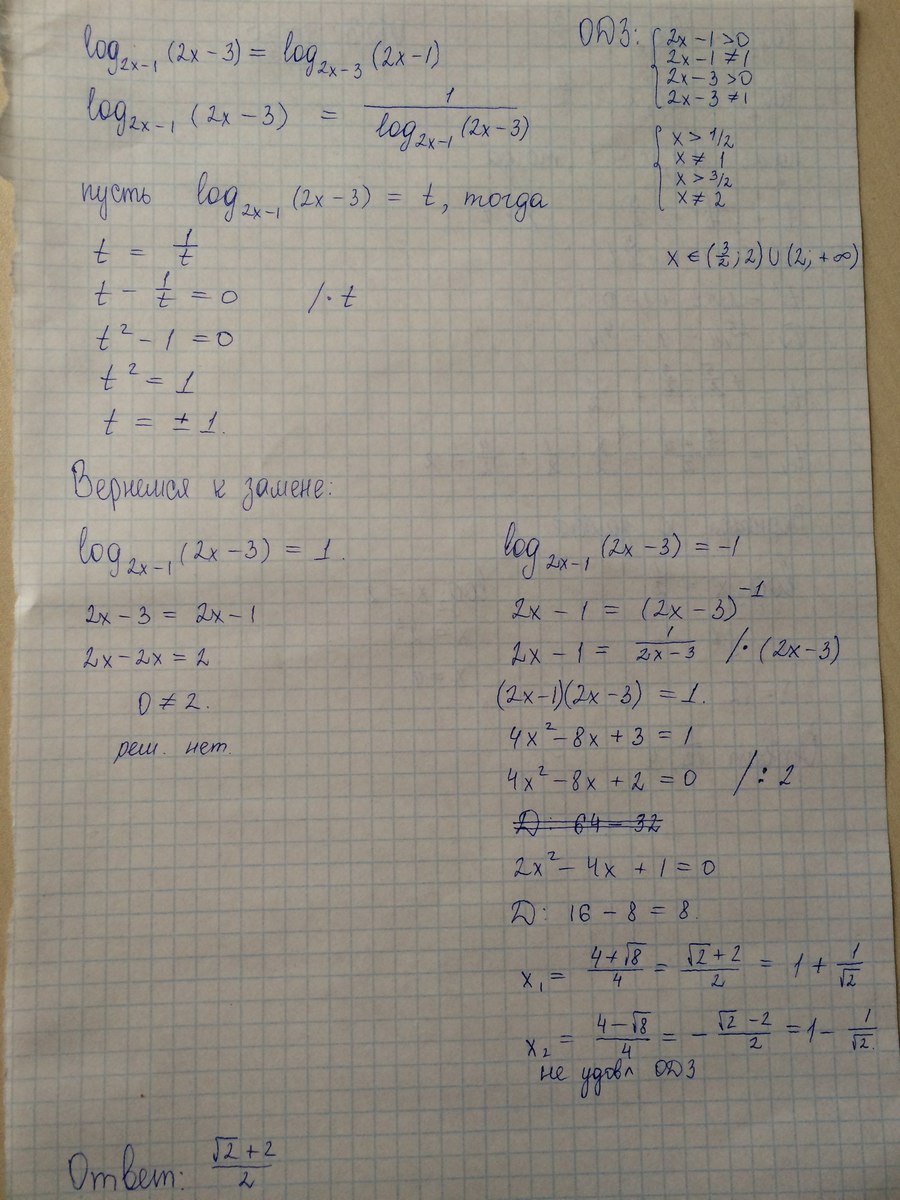 log₂ₓ₋₁ (2x − 3) = log₂ₓ₋₃ (2x − 1)
log₂ₓ₋₁ (2x − 3) = 1 / log₂ₓ₋₁ (2x − 3)
ОДЗ: { 2x − 1 > 0
2x − 1 ≠ 1
2x − 3 > 0
2x − 3 ≠ 1
{ x > 1/2
x ≠ 1
x > 3/2
x ≠ 2
x ∈ (3/2; 2) ∪ (2; +∞)
пусть log₂ₓ₋₁ (2x − 3) = t, тогда
t = 1/t
t − 1/t = 0 /· t
t² − 1 = 0
t² = 1
t = ± 1.
Вернемся к замене:
log₂ₓ₋₁ (2x − 3) = 1.
2x − 3 = 2x − 1
2x − 2x = 2
0 ≠ 2.
реш. нет.
log₂ₓ₋₁ (2x − 3) = −1
2x − 1 = (2x − 3)⁻¹
2x − 1 = 1/(2x − 3) /· (2x − 3)
(2x − 1)(2x − 3) = 1.
4x² − 8x + 3 = 1
4x² − 8x + 2 = 0 /: 2
D: 64 − 32
2x² − 4x + 1 = 0
D: 16 − 8 = 8.
x₁ = (4 + √8)/4 = (√2 + 2)/2 = 1 + 1/√2
x₂ = (4 − √8)/4 = − (√2 − 2)/2 = 1 − 1/√2.
не удовл ОДЗ
Ответ: (√2 + 2)/2